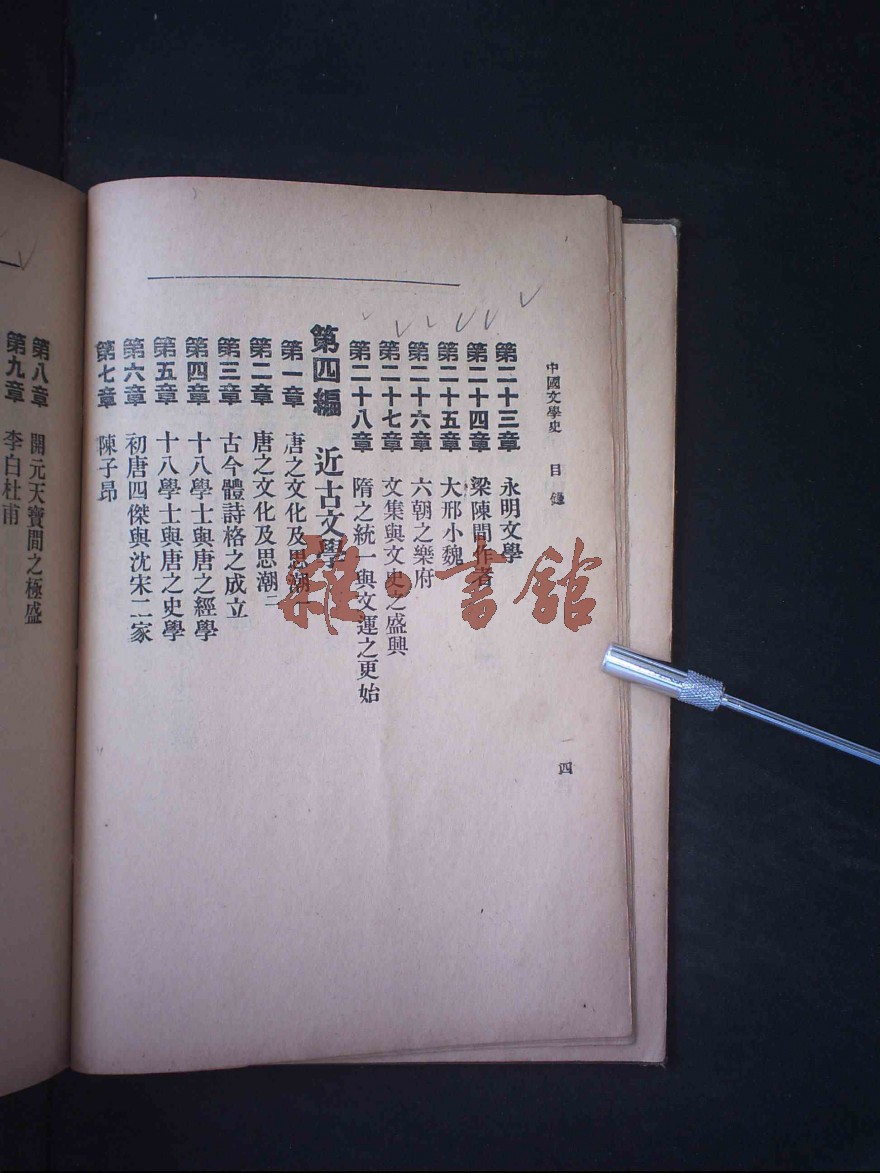 中國文學史　目錄
四
第二十三章　永明文學
第二十四章　梁陳間作者
第二十五章　大邢小魏
第二十六章　六朝之樂府
第二十七章　文集與文史之盛興
第二十八章　隋之統一與文運之更始
第四編　近古文學
第一章　唐之文化及思潮一
第二章　唐之文化及思潮二
第三章　古今體詩格之成立
第四章　十八學士與唐之經學
第五章　十八學士與唐之史學
第六章　初唐四傑與沈宋二家
第七章　陳子昂
第八章　開元天寶間之極盛
第九章　李白杜甫
雜·書館